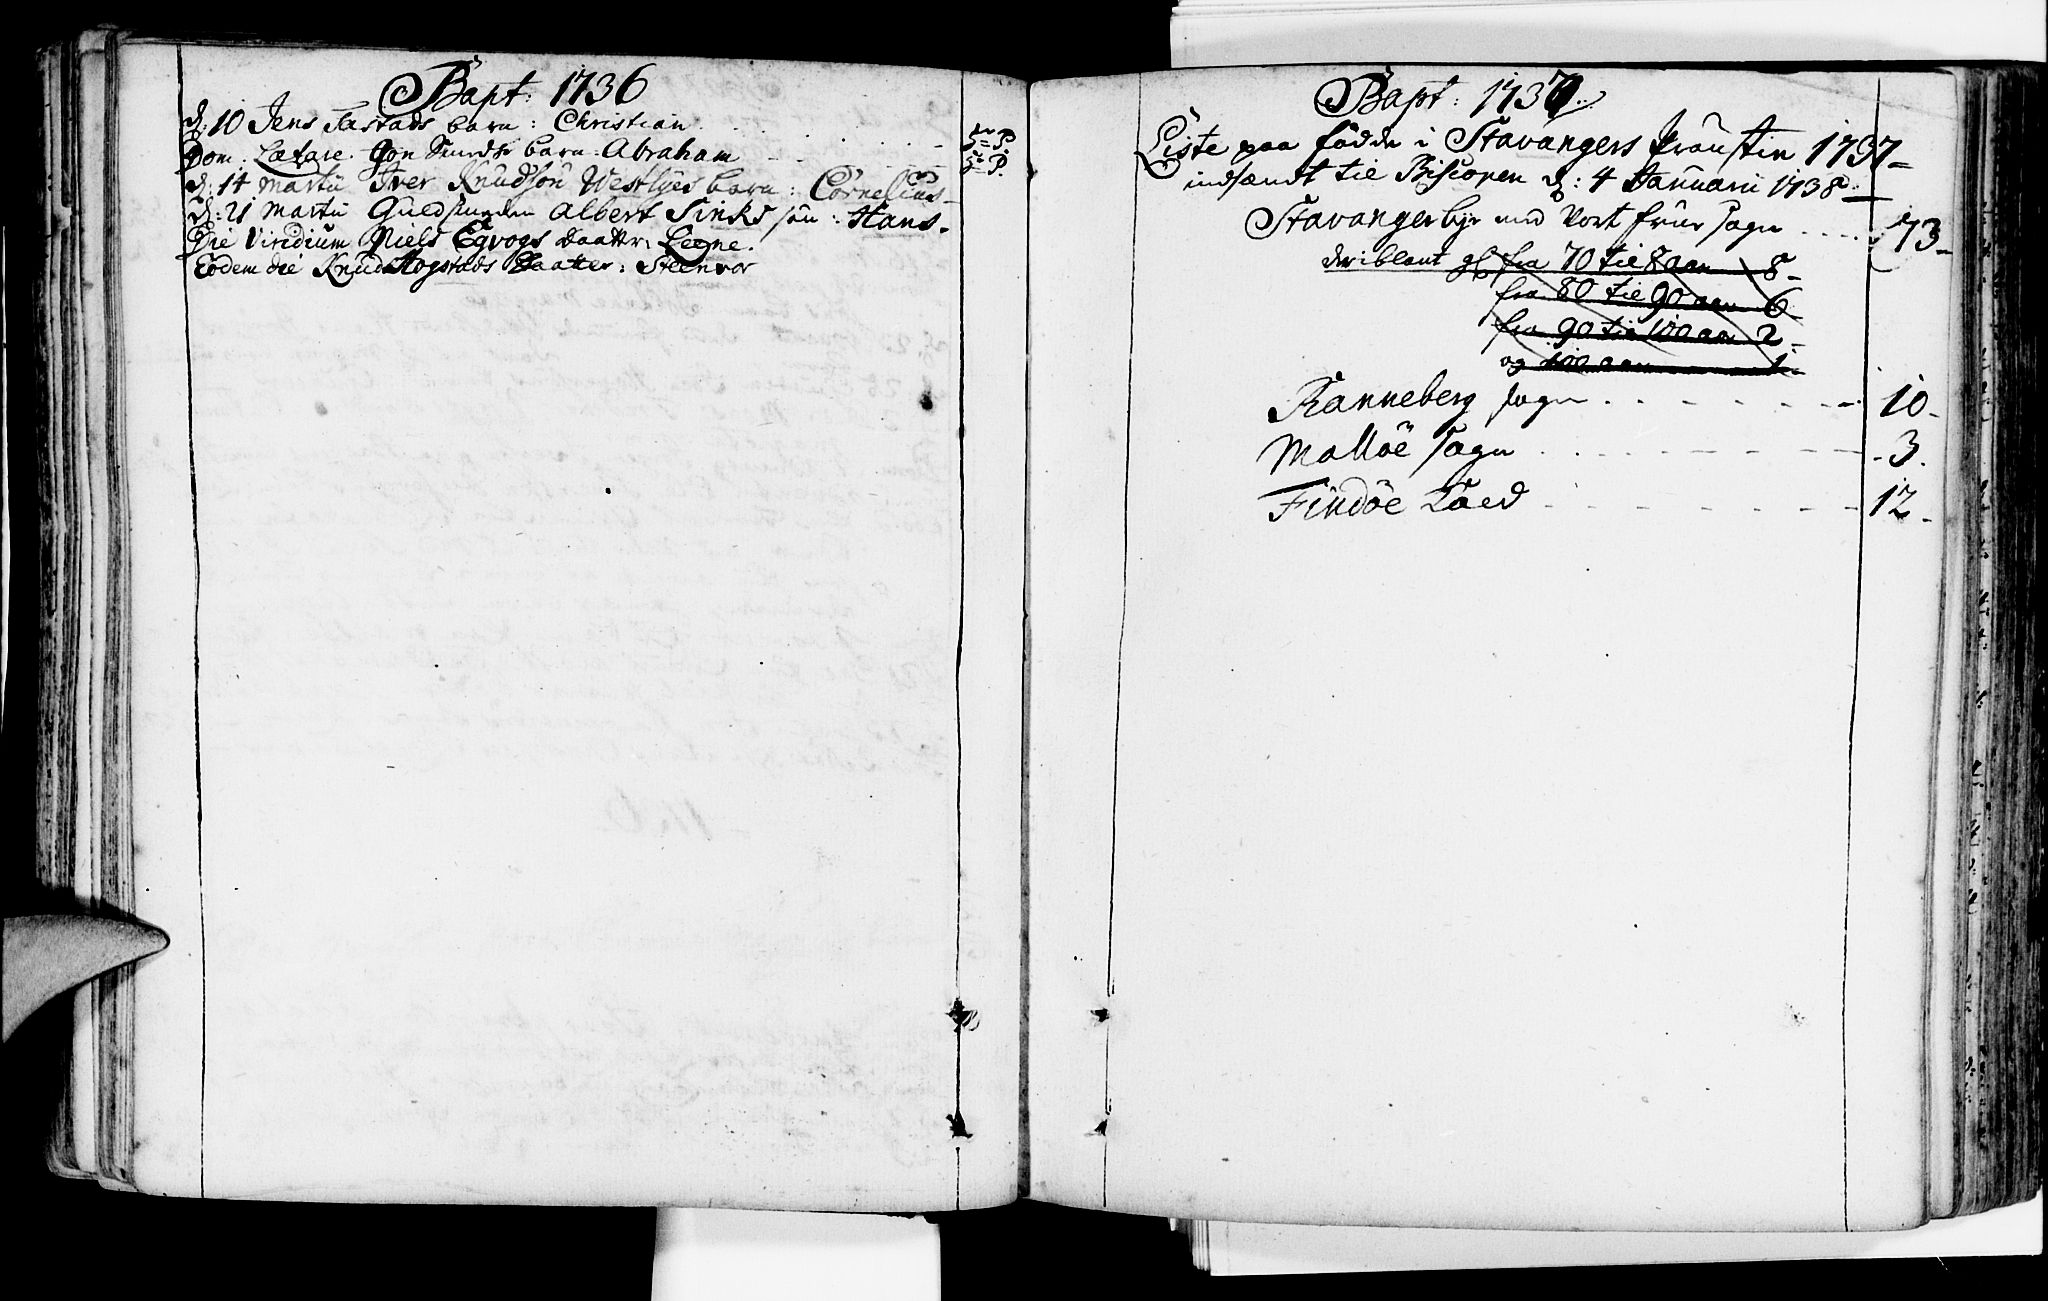 Bapt: 1736
d: 10 Jens Tastads barn: Christian
Dom. Lætare. Jon Smeds barn: Abraham
d: 14 Martii Iver Knudsøn Westlyes barn: Cornelius
d: 21 Martii Guldsmeden Albert Sinks søn: Hans.
Die Viridium Niels Egvogs Daatter:
Eodem die Knud Mogstads Daatter: Steenvor
Bapt: 1737
Liste paa fødde i Stavangers Proustie 1737
indsændt til Biscopen d: 4 Januarii 1738.
Stavanger bye med Vort frue Sogn .... 73
deriblant fra 70 til 80 aar 8
fra 80 til 90 aar 6
fra 90 til 100 aar 2
og 100 aar 1
Ranneberg Sogn . . . . 10
Malløe Sogn . . . . 3.
Findøe . . . . 12